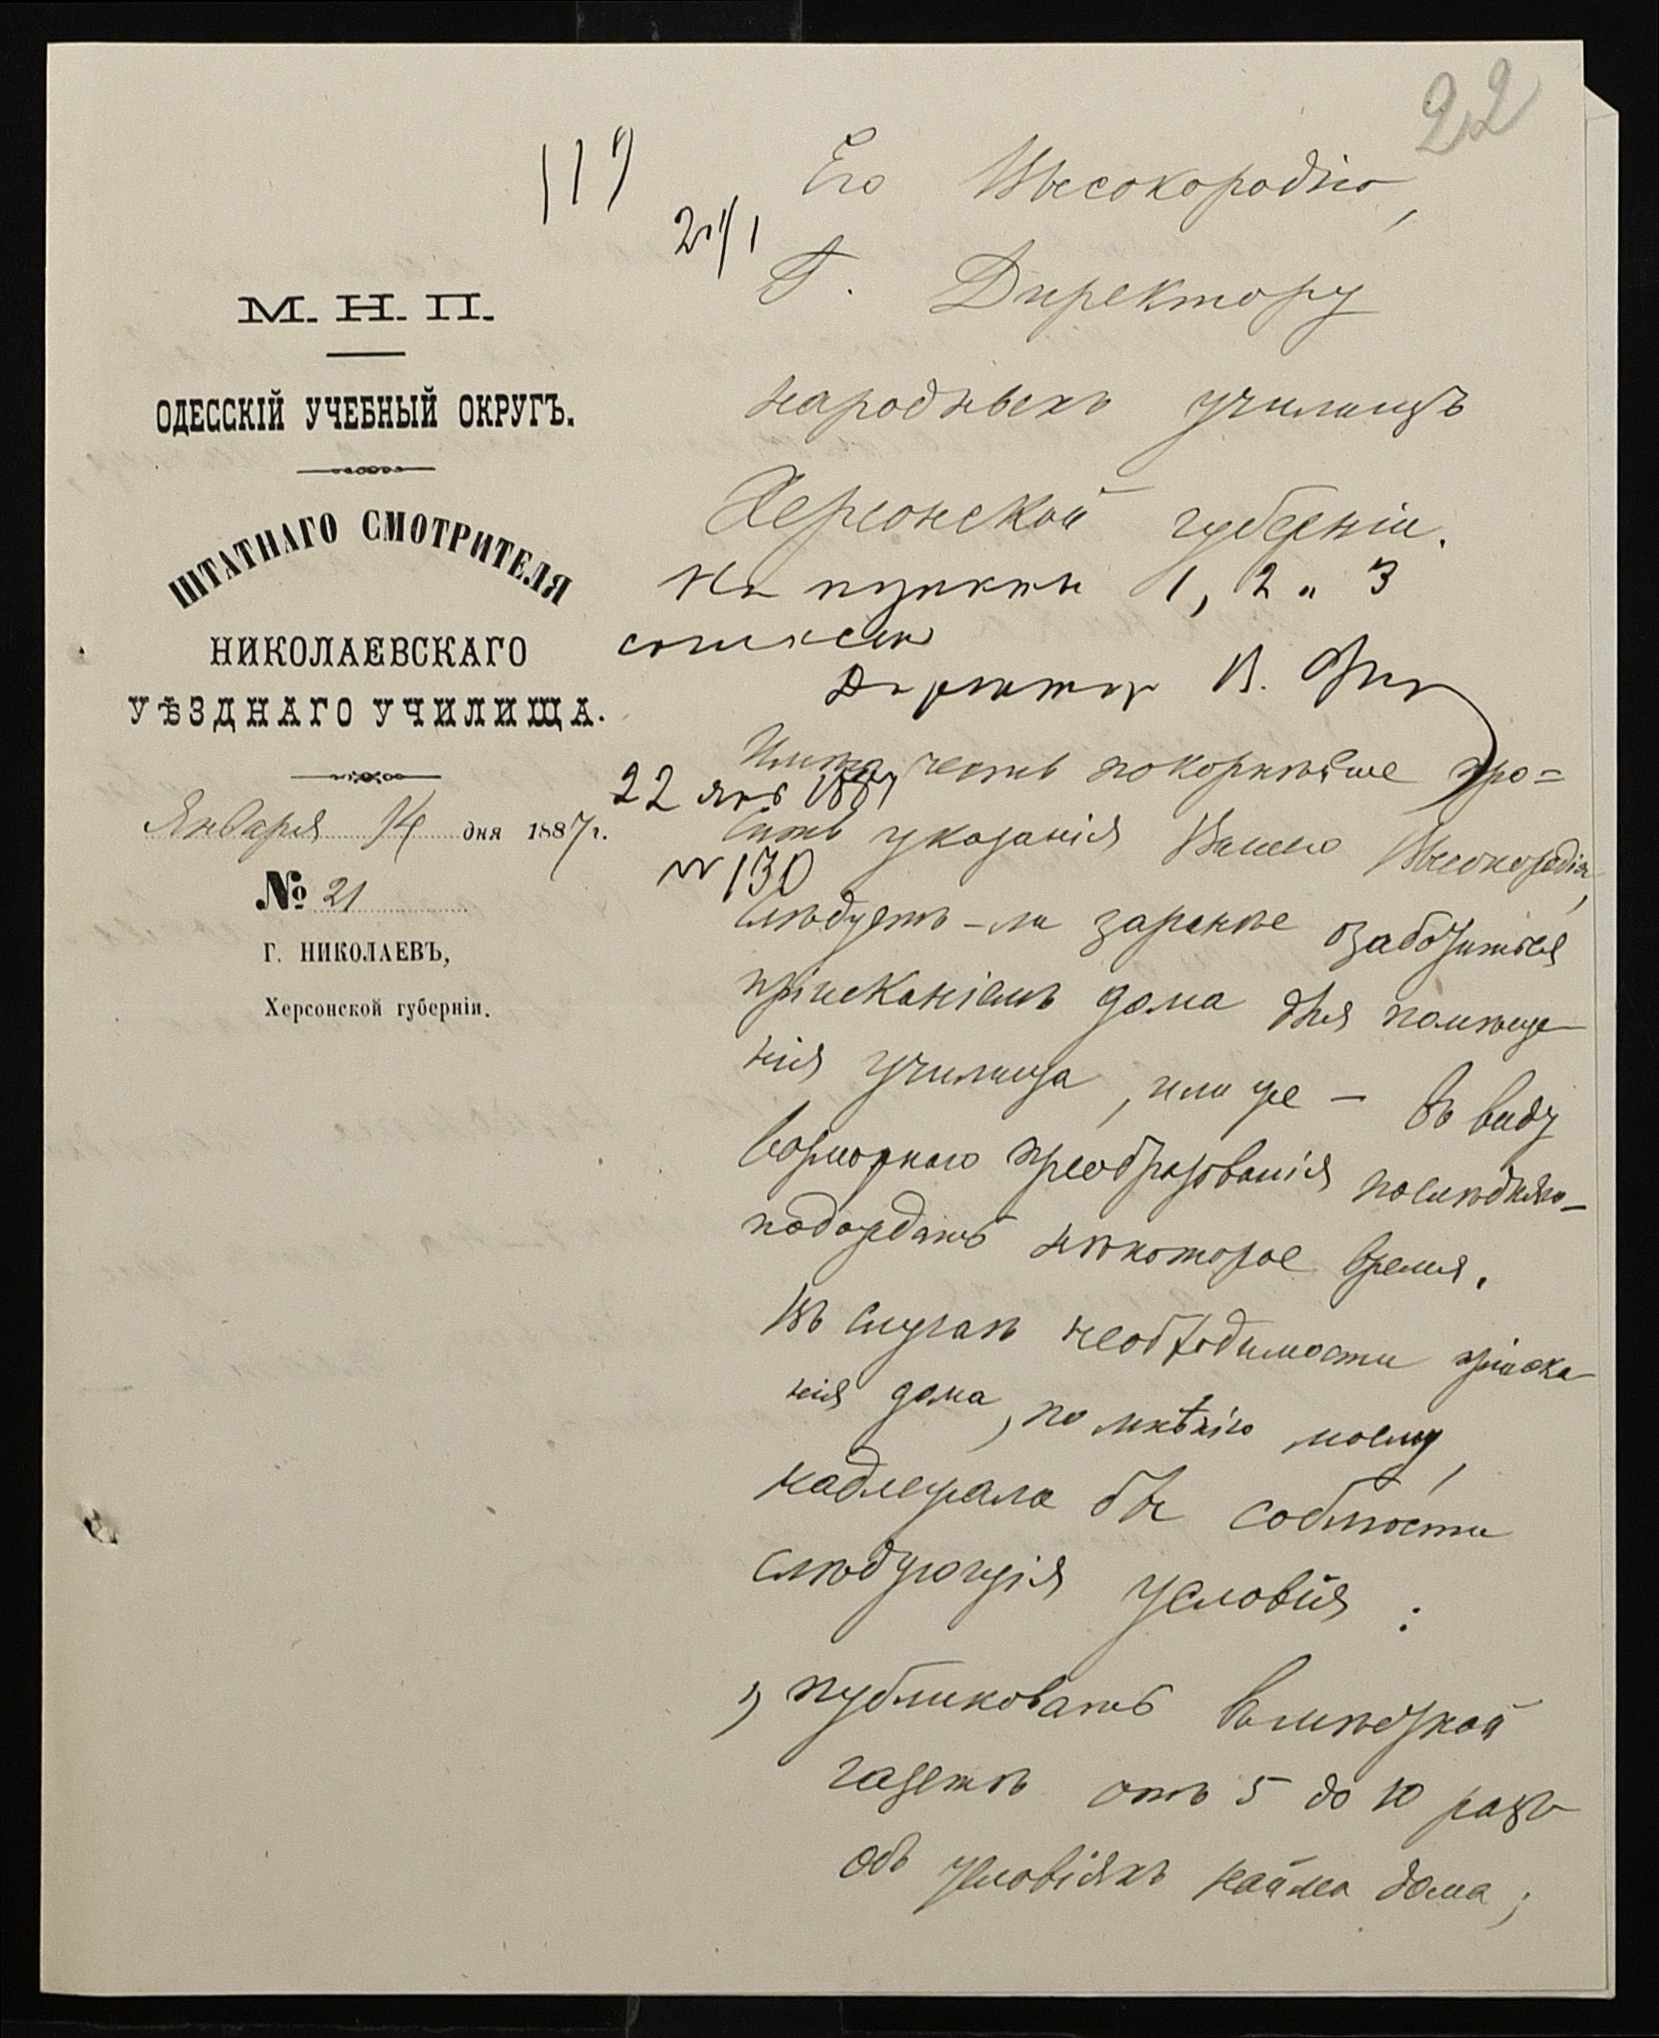 22
119
21/1
М. Н. П.
ОДЕССКІЙ УЧЕБНЫЙ ОКРУГЪ.
ШТАТНАГО СМОТРИТЕЛЯ
НИКОЛАЕВСКАГО
УѢЗДНАГО УЧИЛИЩА.
Января 14 дня 1887 г.
№ 21
Г. НИКОЛАЕВЪ,
Херсонской губерніи.
Его Высокородію,
Г. Директору
народныхъ училищъ
Херсонской губерніи.
На пункты 1, 2 и 3
согласенъ
Директоръ В.
22 янв 1887
№ 130
Имѣю честь покорнѣйше про=
сить указанія Вашего Высокородія,
слѣдуетъ-ли заранѣе озаботиться
пріисканіемъ дома для помѣще-
нія училища, или же - въ виду
возможнаго преобразованія послѣдняго-
подождать нѣкоторое время.
Въ случаѣ необходимости пріиска-
нія дома, по мнѣнію моему,
надлежало бы соблюсти
слѣдующія условія:
1) публиковать въ мѣстной
газетѣ отъ 5 до 10 разъ
объ условіяхъ найма дома;